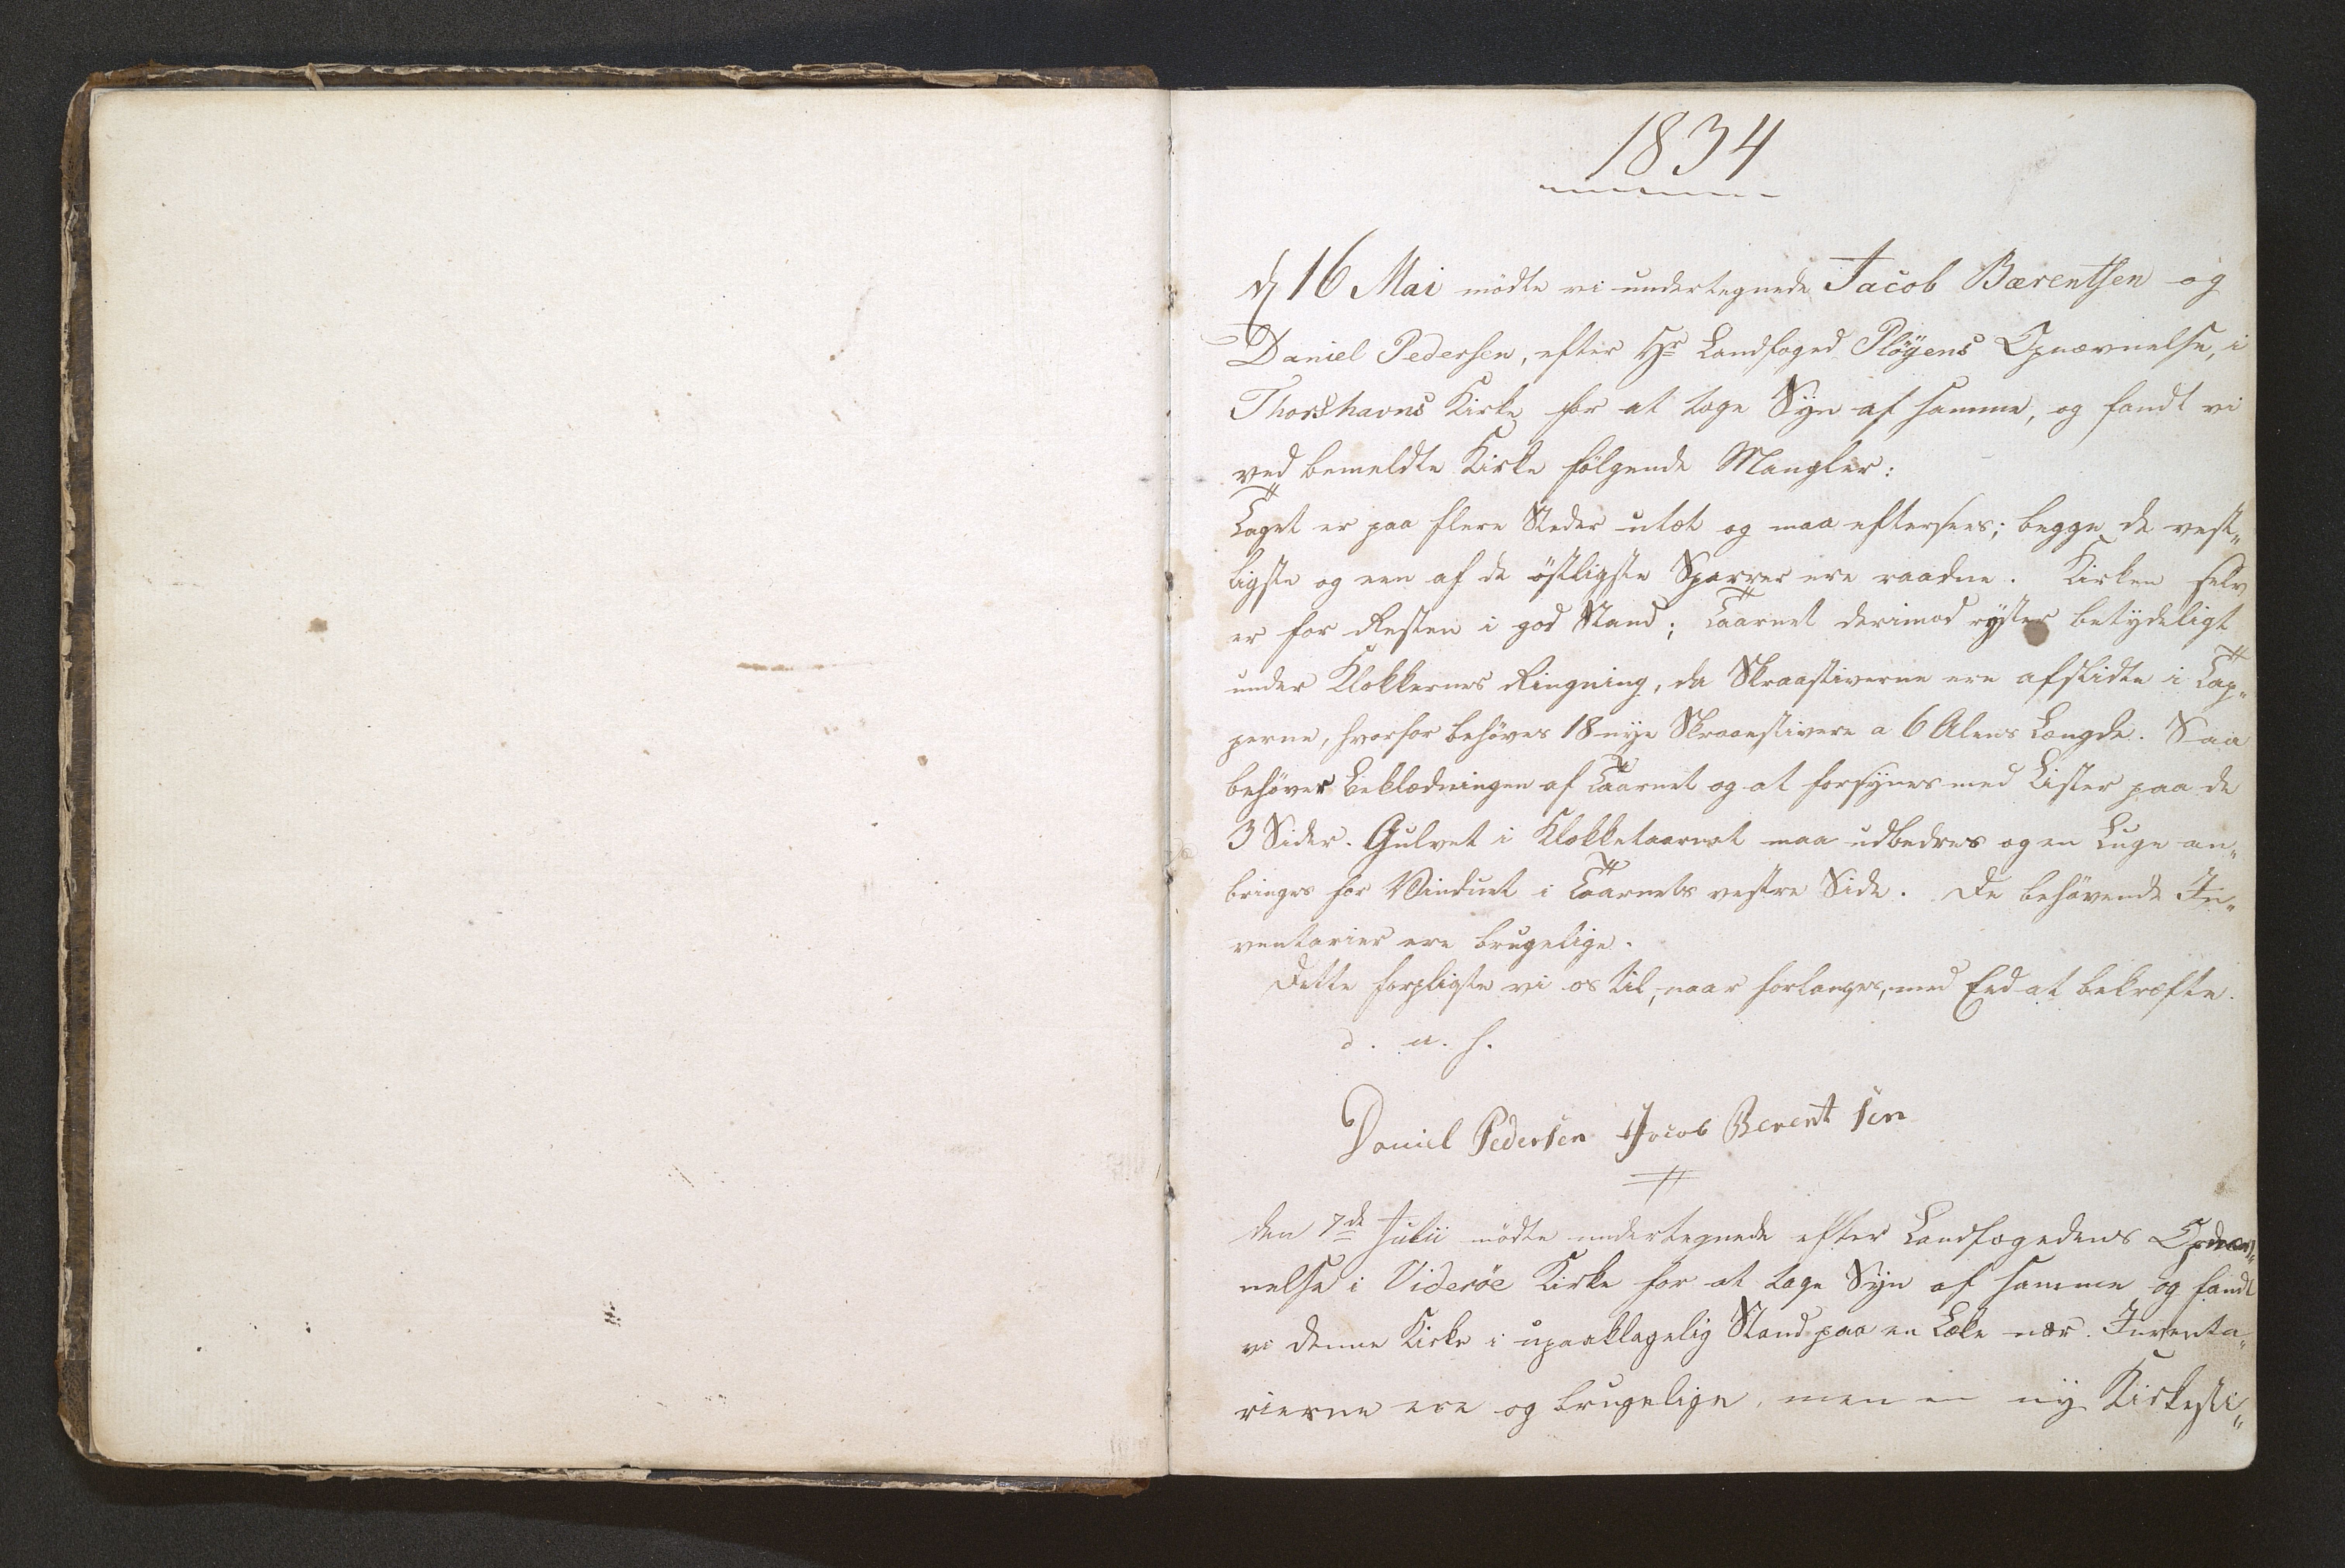 1834
d 16 Mai mødte vi undertegnede Jacob Bærentsen og
Daniel Pedersen, efter Hr Landfoged Pløyens Opnævnelse, i
Thorshavns Kirke for at tage Syn af samme, og fandt vi
ved bemeldte Kirke følgende Mangler:
Taget er paa flere Steder utæt og maa eftersees; begge de vest„
ligste og een af de østligste Sparrer ere raadne. Kirken selv
er for Resten i god Stand; Taarnet derimod ryster betydeligt
under Klokkernes Ringning, da Skraastiverne ere afslidte i Tap„
perne, hvorfor behøves 18 nye Skraastivere a 6 Alens Længde. Saa
behøver Beklædningen af Taarnet og at forsynes med Lister paa de
3 Sider. Gulvet i Klokketaarnet maa udbedres og en Luge an„
bringes for Vinduet i Taarnets vestre Side. De behøvende In„
ventarier ere brugelige.
Dette forpligte vi os til, naar forlanges, med Eed at bekræfte.
d. u. s.
Daniel Pedersen Jacob Berentsen
den 7de Julii mødte undertegnede efter Landfogedens
nelse i Viderøe Kirke for at tage Syn af samme og fandt
vi denne Kirke i upaaklagelig Stand paa en Læke nær. Inventa„
rierne ere og brugelige, men en ny Kirkesti„